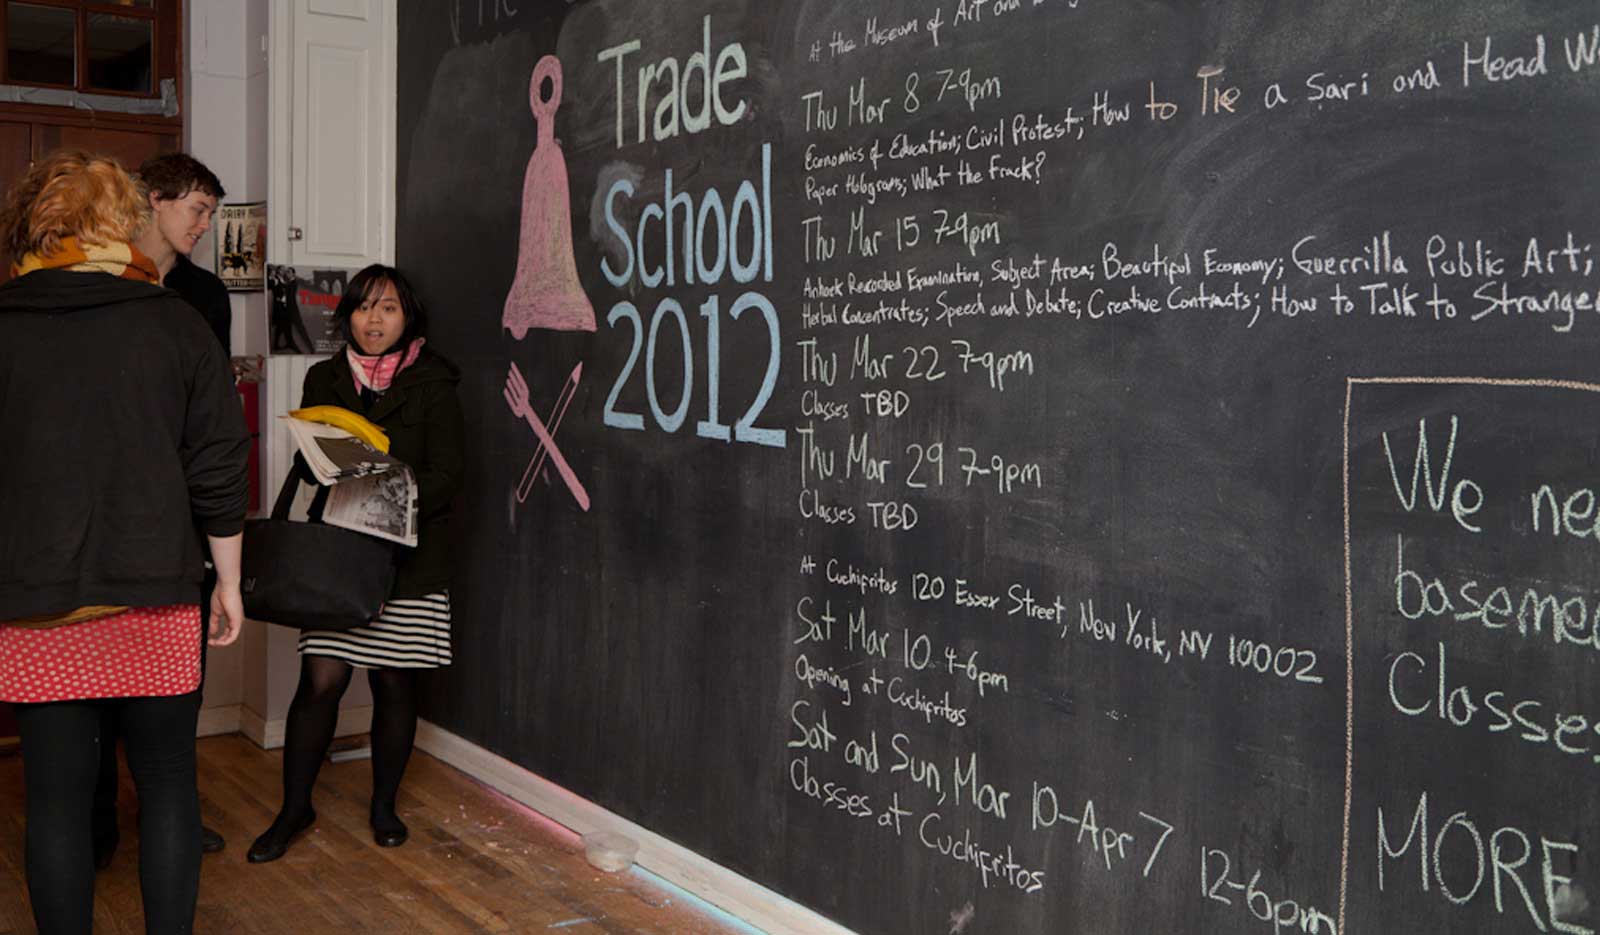 Trade
School
2012
At the Museum of Art and
Thu Mar 8 7-9pm
Economics of Education; Civil Protest; How to Tie a Sari and Head
Paper Holograms; What the Frack?
Thu Mar 15 7-9pm
Recorded Examination, Subject Area; Beautiful Economy; Guerrilla Public Art;
Herbal Concentrates; Speech and Debate; Creative Contracts; How to Talk to Stranger
Thu Mar 22 7-9pm
Classes TBD
Thu Mar 29 7-9pm
Classes TBD
At Cuchifritos 120 Essex Street, New York, NY 10002
Sat Mar 10 4-6pm
Opening at Cuchifritos
Sat and Sun, Mar 10-Apr 7 12-6pm
Classes at Cuchifritos
We nee
basemen
Classes
MORE
DAIRY